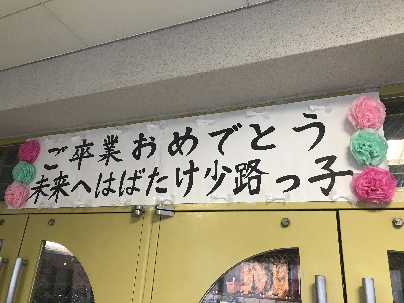 ご卒業おめでとう
未来へはばたけ少路っ子